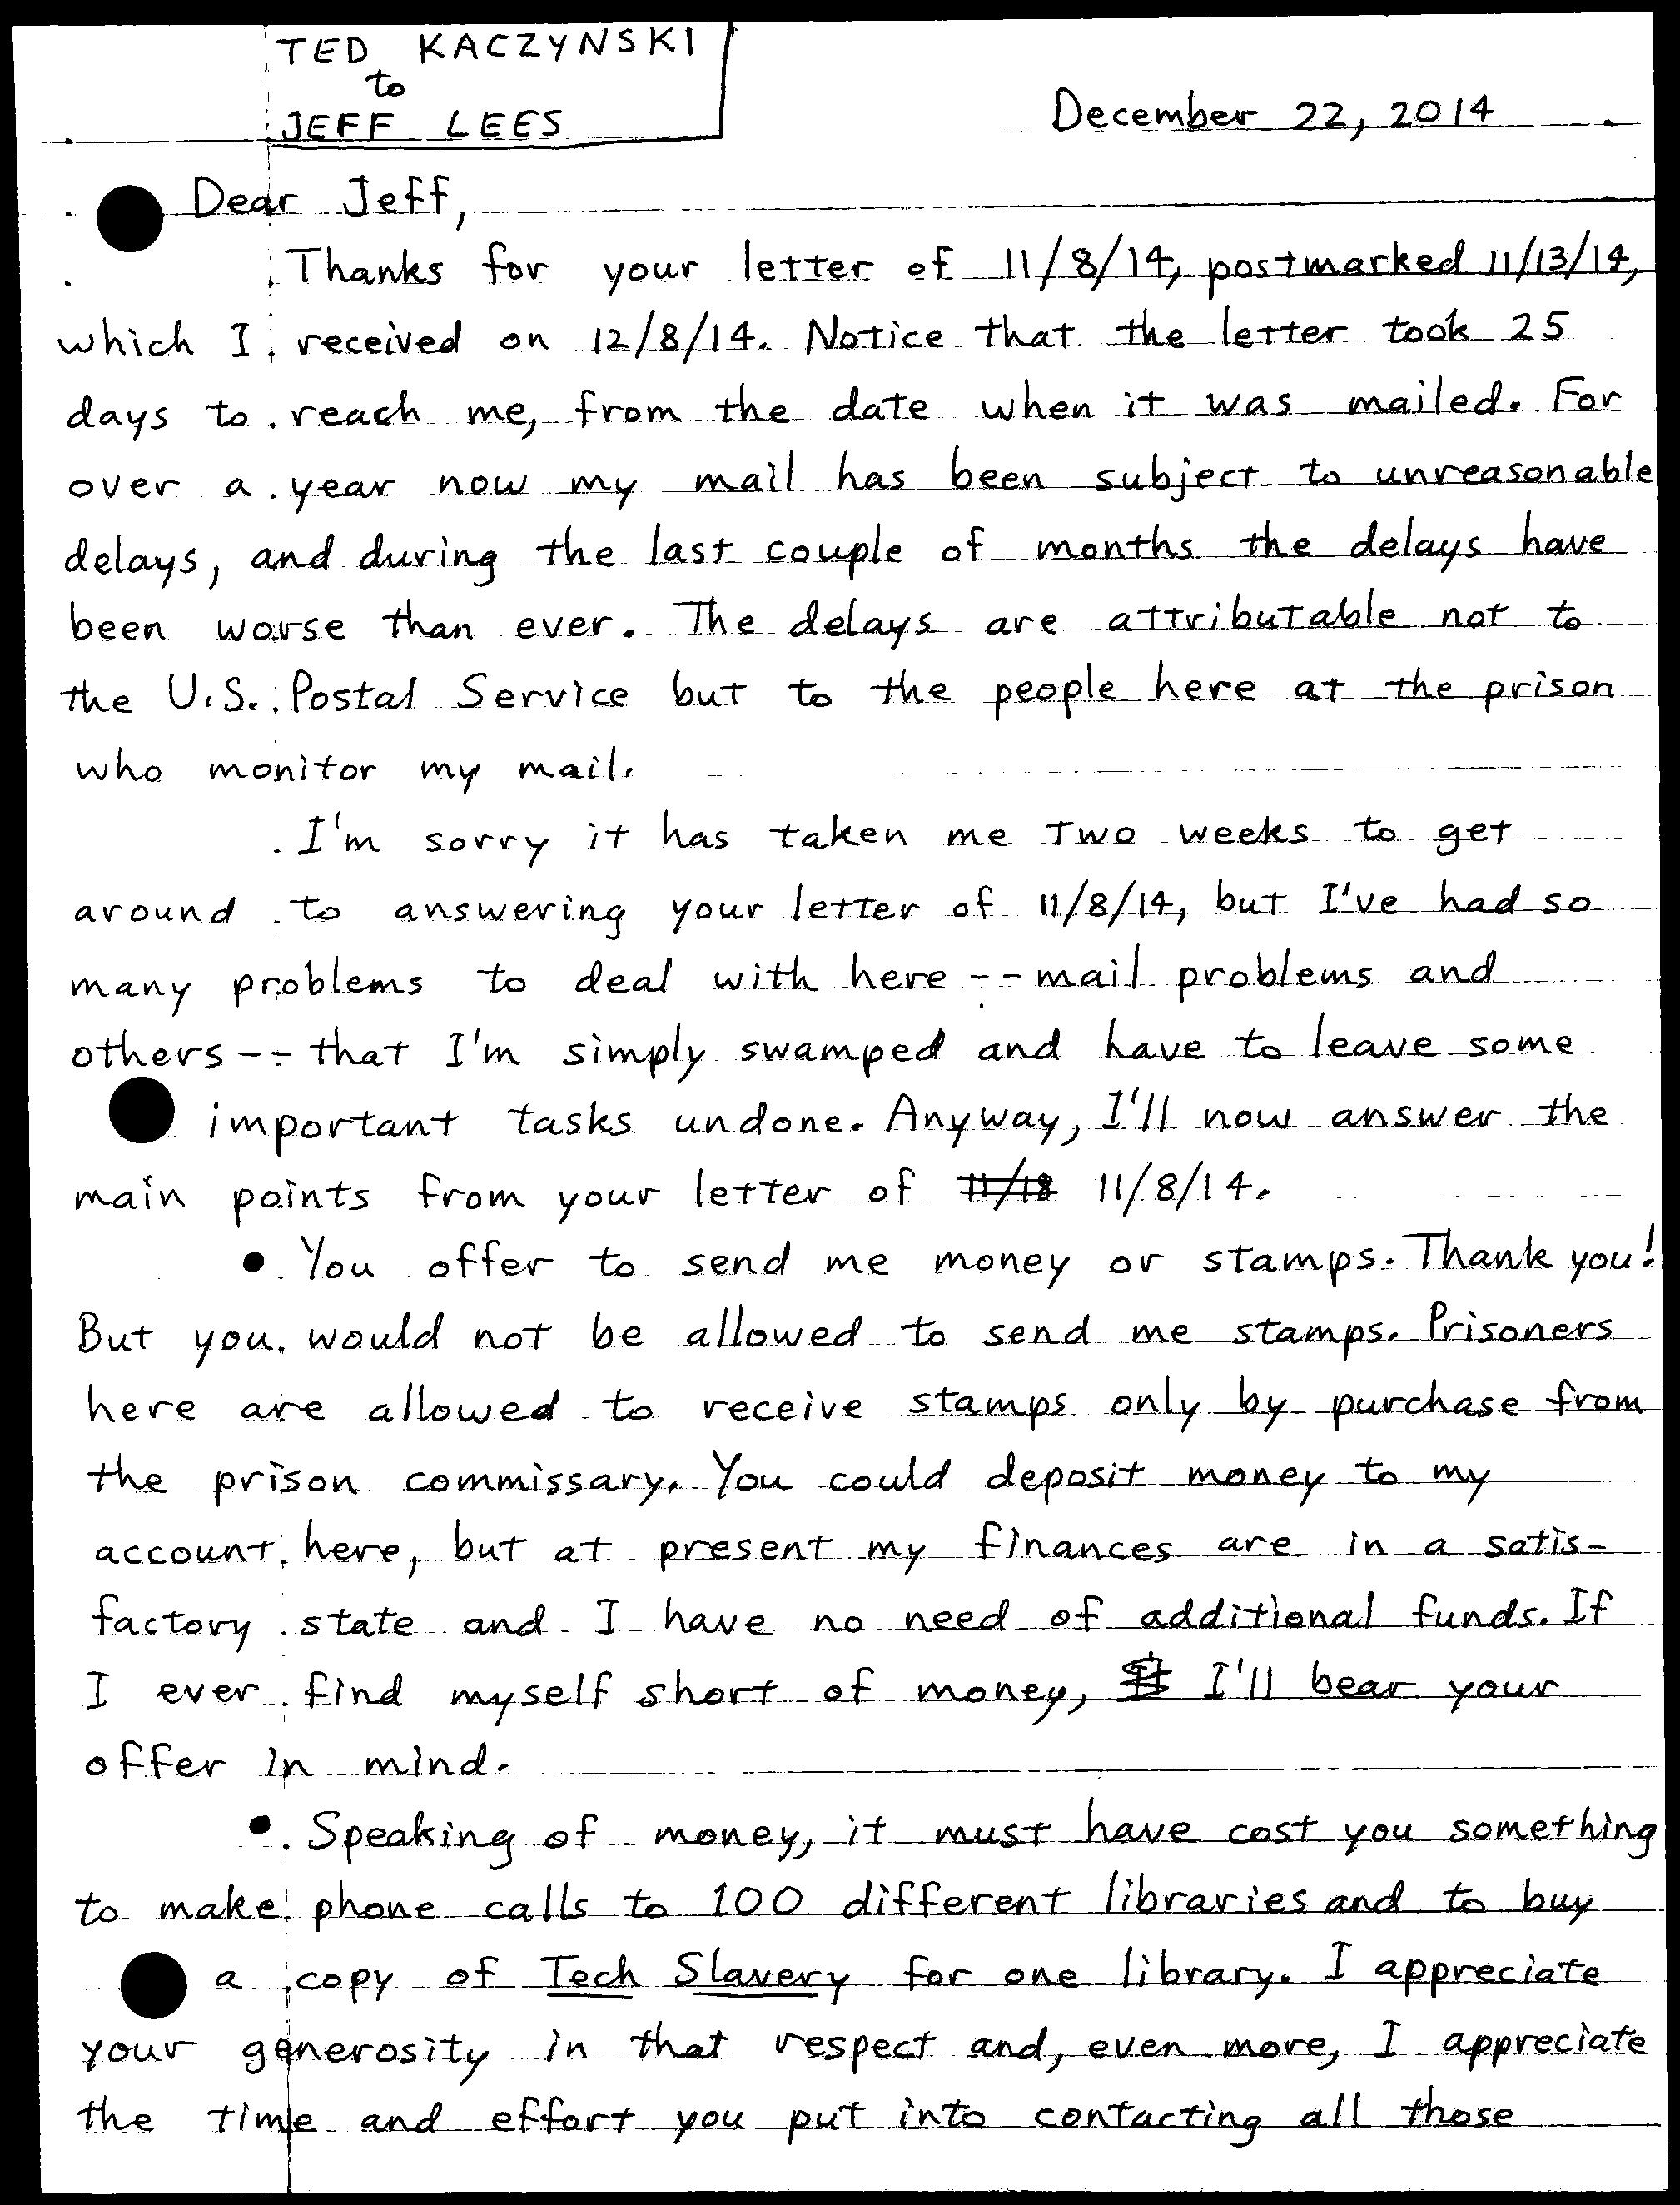 TED KACZYNSKI
to
JEFF LEES
December 22, 2014
Dear Jeff,
Thanks for your letter of 11/8/14, postmarked 11/13/14,
which I received on 12/8/14. Notice that the letter took 25
days to reach me, from the date when it was mailed. For
over a year now my mail has been subject to unreasonable
delays, and during the last couple of months the delays have
been worse than ever. The delays are attributable not to
the U.S. Postal Service but to the people here at the prison
who monitor my mail.
I'm sorry it has taken me two weeks to get
around to answering your letter of 11/8/14, but I've had so
many problems to deal with here -- mail problems and
others -- that I'm simply swamped and have to leave some
important tasks undone. Anyway, I'll now answer the
main points from your letter of 11/18 11/8/14.
• You offer to send me money or stamps. Thank you!
But you would not be allowed to send me stamps. Prisoners
here are allowed to receive stamps only by purchase from
the prison commissary. You could deposit money to my
account here, but at present my finances are in a satis-
factory state and I have no need of additional funds. If
I ever find myself short of money, I'll bear your
offer in mind.
• Speaking of money, it must have cost you something
to make phone calls to 100 different libraries and to buy
a copy of Tech Slavery for one library. I appreciate
your generosity in that respect and, even more, I appreciate
the time and effort you put into contacting all those